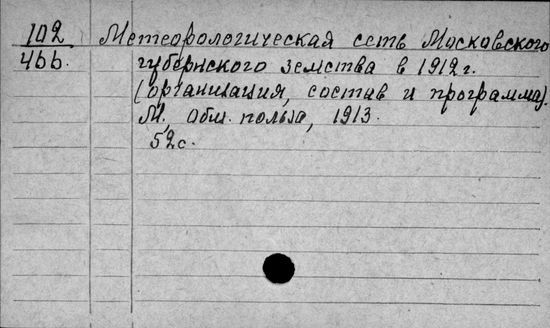 102 Метеорологическая сеть Московского
466. губернского земства в 1912 г.
(организация, состав и программа).
М., Общ. польза, 1913.
52 с.